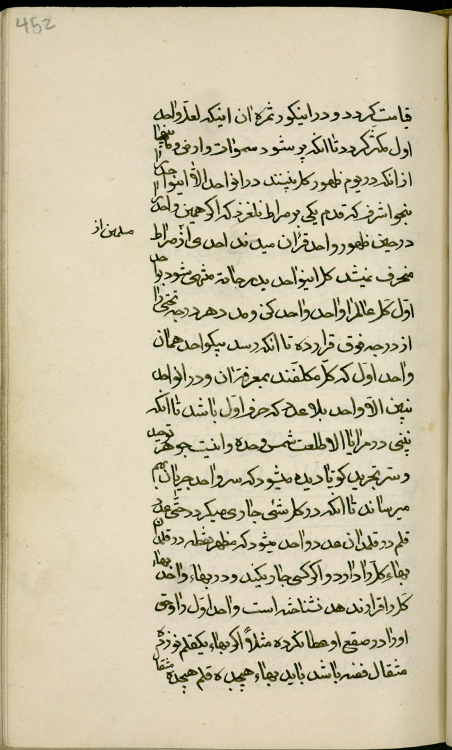 452
قیامت گردد و در اینکور ثمرهٔ ان اینکه لعل واحد
اول مکثر گردد تا انکه پر شود سموات و ارض و ما بینهما
از انکه در یوم ظهور کل نبینند در انواحد الا اینواحد را
در حین ظهور واحد قران میدیدند احدی از صراط
مسلمین از
منحرف نمیشد کل اینواحد بدرجات منتهی میشود بواحد
اول کل عالم را واحد واحد کن و مد دهر درجهٔ تحتی را
از درجه فوق قرار ده تا انکه رسد بیکواحد همان
واحد اول که کل مکلفند بمعرفة ان و در انواحد
نبین الا واحد بلا عدد که حرف اول باشد تا انکه
نبینی در مرایا الا طلعت شمس وحده و اینست جوهر توحید
و سر تجرید کویا دیده میشود که سر واحد جریان بهم
میرساند تا انکه در کلشئ جاری میگردد حتی عدد
قلم در قلمدان عدد واحد میشود که مظهر نقطه در قلمدان
بهاء کل را دارد و اگر کسی جاری کند و در بهاء واحد
کل را قرار ندهد نشناخته است واحد اول را وقتی
او را در صقع او عطا نکرده مثلا اگر بهاء یکقلم نوزده
مثقال فضه باشد باید بهاء هیجده قلم هیجده مثقال